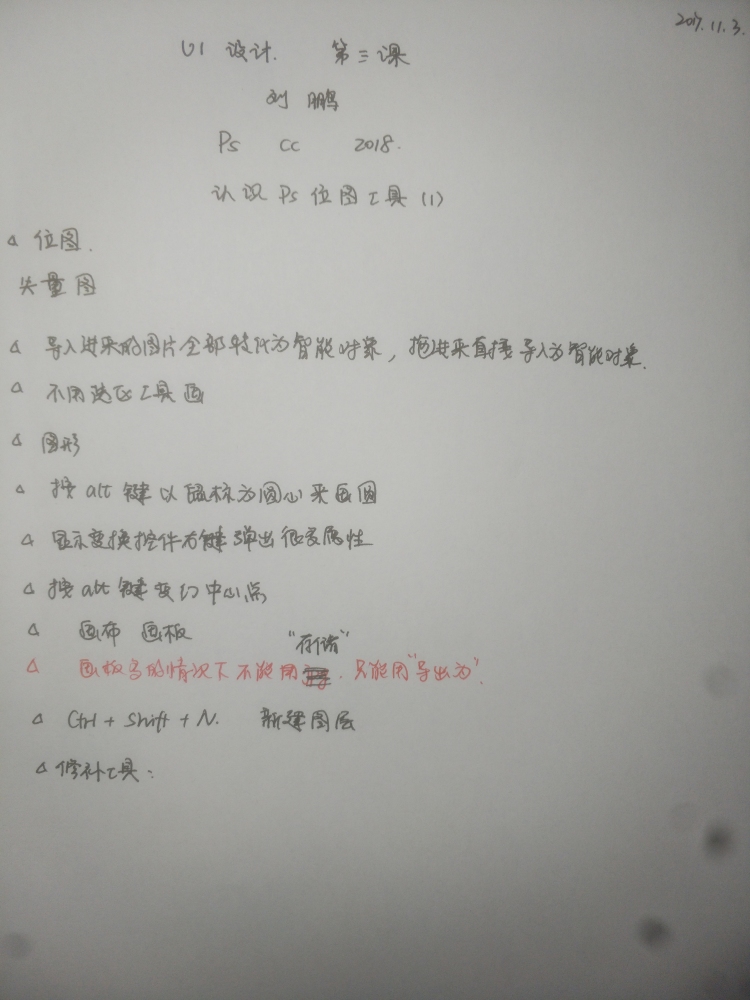 2017.11.3.
UI 设计. 第三课
刘鹏
Ps CC 2018.
认识 Ps 位图工具(1)
△ 位图.
失量图
△ 导入进来的图片全部转化为智能对象, 拖进来直接导入为智能对象.
△ 不用选区工具画
△ 图形
△ 按 alt 键以鼠标为圆心来画圆
△ 显示变换控件右键弹出很多属性
△ 按 alt 键变幻中心点
△ 画布 画板
"存储"
△ 画板多的情况下不能用 . 只能用"导出为".
△ Ctrl + Shift + N. 新建图层
△ 修补工具: